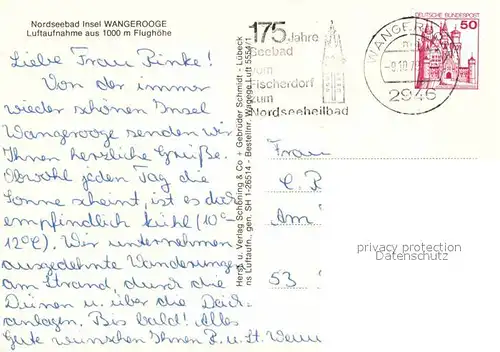 Nordseebad Insel WANGEROOGE
Luftaufnahme aus 1000 m Flughöhe
Liebe Frau Pinke!
Von der immer
wieder schönen Insel
Wangerooge senden wir
Ihnen herzliche Grüße.
Obwohl jeden Tag die
Sonne scheint, ist es doch
empfindlich kühl (10°-
12°C). Wir unternehmen
ausgedehnte Wanderungen
am Strand, durch die
Dünen u. über die Deich-
anlagen. Bis bald! Alles
Gute wünschen Ihnen P. u. St.
Herst. u. Verlag Schöning & Co + Gebrüder Schmidt - Lübeck
ns Luftaufn., gen. SH 1-26514 - Bestellnr. Wagege Luft 5554/1
175 Jahre
Seebad
vom
Fischerdorf
zum
Nordseeheilbad
WANGEROO
2946
DEUTSCHE BUNDESPOST
50
Frau
C. P
Am
53
privacy protection
Datenschutz